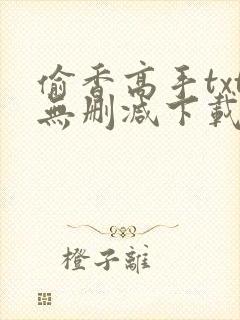 偷香高手txt
無刪減下載
橙子離